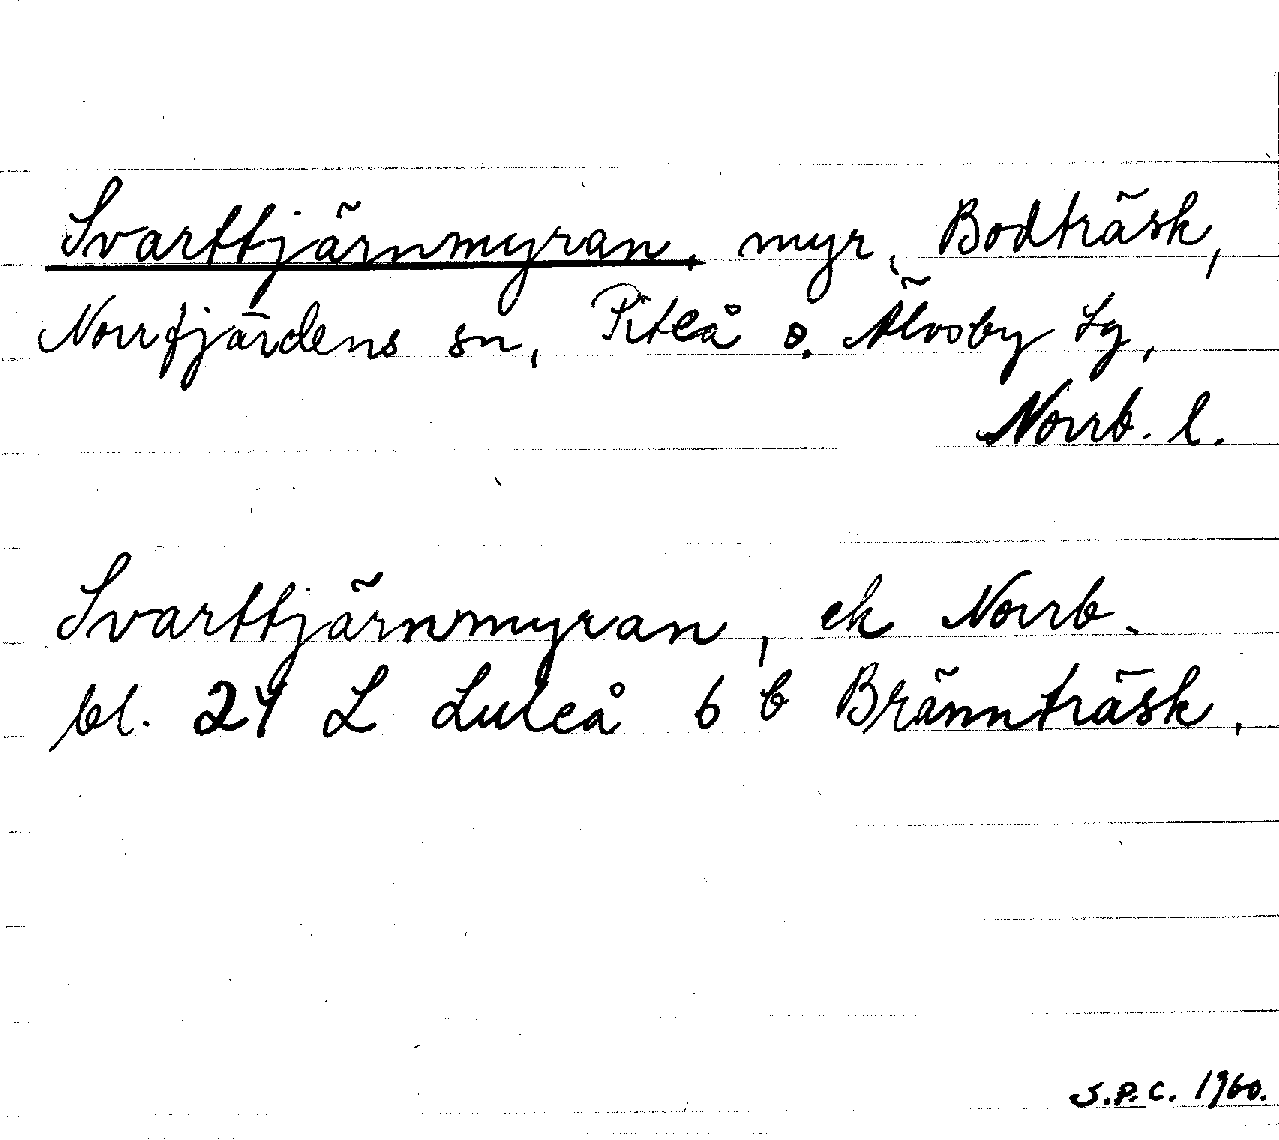 Svarttjärnmyran, myr, Bodträsk,
Norrfjärdens sn, Piteå o. Älvsby tg,
Norrb. l.
Svarttjärnmyran, ek Norrb.
bl. 24 L Luleå 6 b Brännträsk.
S.P.C. 1960.